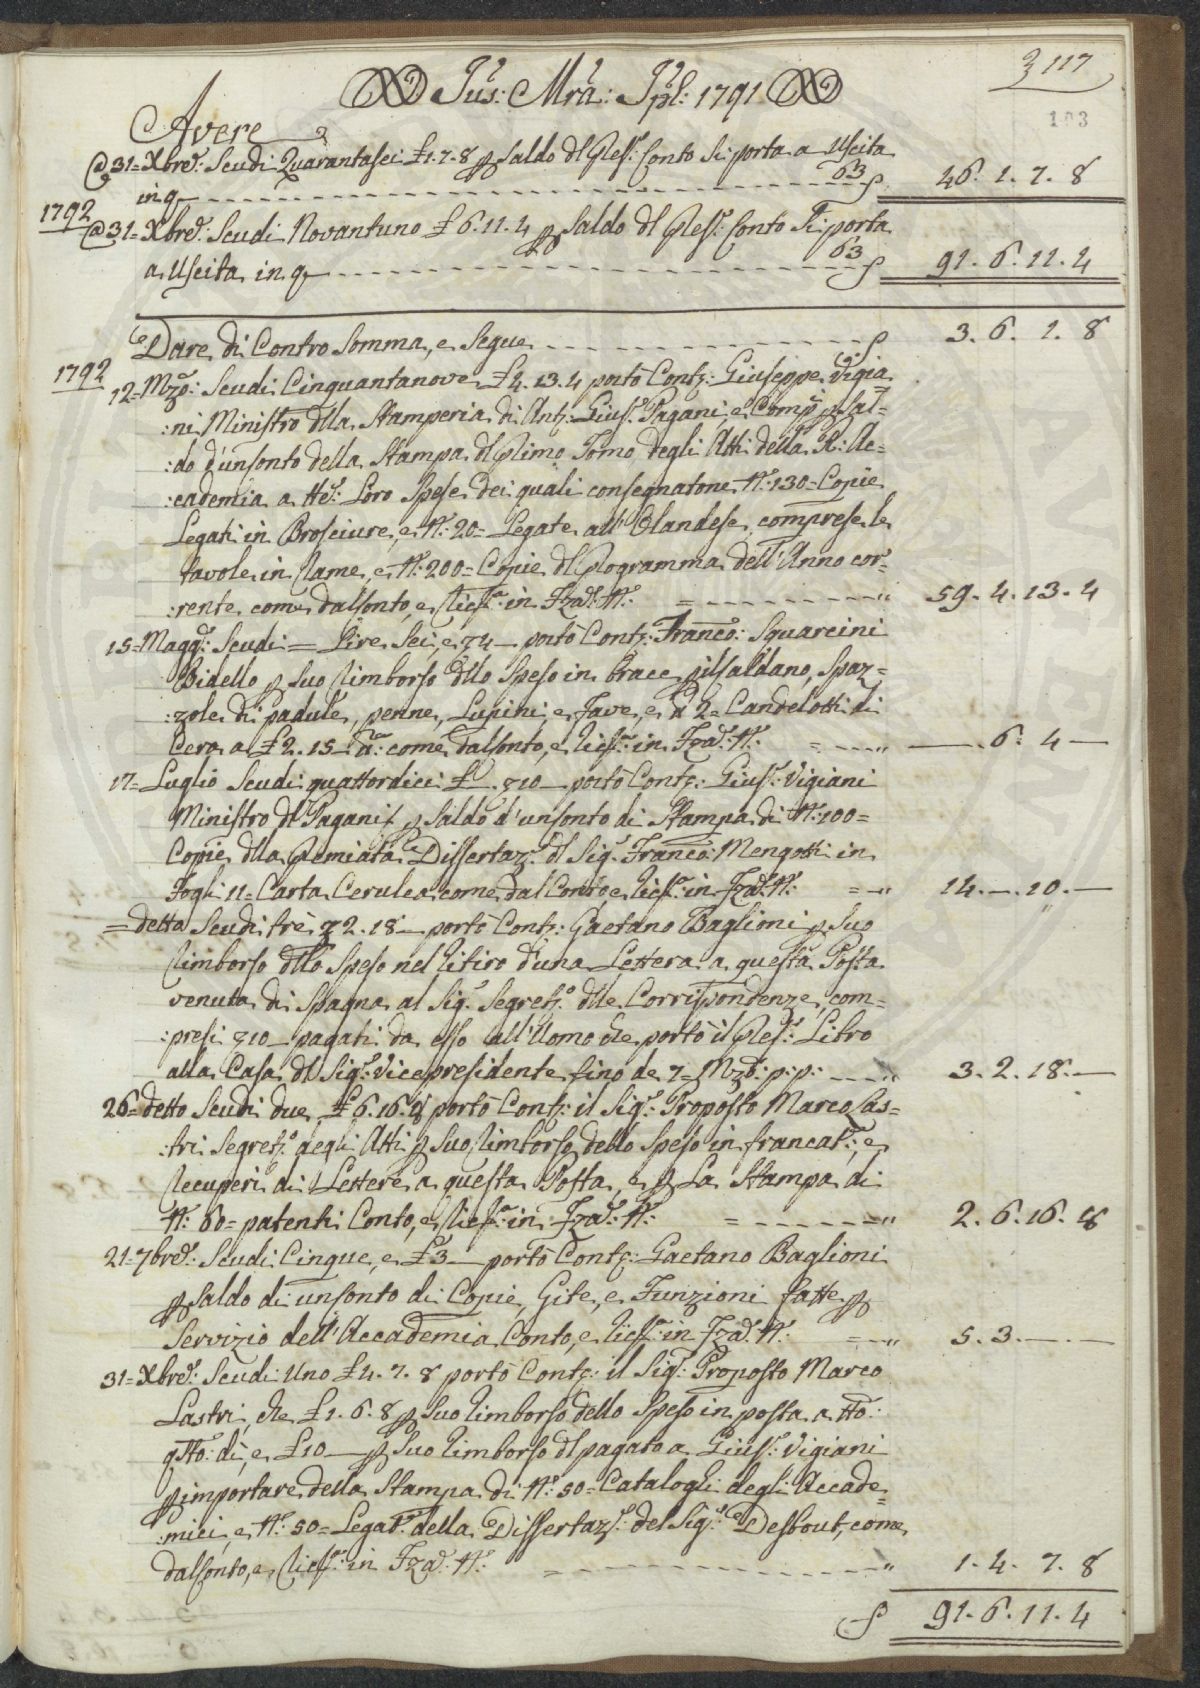 117
103
Jus: Mrā: Jpl: 1791
Avere
@ 31= Xbre: Scudi Quarantasei £1.7.8 p Saldo dl Ples: Conto Si porta a Uscita
in q 63 46. 1. 7. 8
1792
@ 31= Xbre: Scudi Novantuno £ 6.11.4 p Saldo dl Pres: Conto Si porta
a Uscita in q 63 91. 6. 11. 4
Dare di Contro Somma, e Segue 3. 6. 1. 8
1792
12= Mzo: Scudi Cinquantanove £4.13.4 portò Conti: Giuseppe Vigia
:ni Ministro dlla Stamperia di Ant: Gius: Pagani, e Comp: p Sal=
:do d'un Conto della Stampa dl Primo Tomo degli Atti della R: Ac=
:cademia a tte: Loro Spese dei quali consegnatone N: 130= Copie
Legati in Brosciure, e N: 20= Legate all'Olandese, comprese le
tavole in Rame, e N: 200= Copie dl Programma dell'Anno cor=
:rente come dal Conto, e Ricev: in Fza: N: 59. 4. 13. 4
15= Magg: Scudi = Lire Sei, e 4 portò Cont: Franco: Squarcini
Bidello p Suo Rimborso dllo Speso in brace p il Caldano, Spaz=
:zole di padule, penne, Lupini, e Fave, e d 2= Candelotti di
Cera a £2.15 come dal Conto, e Ricev: in Fza: N: 6. 4
17= Luglio Scudi quattordici £ . 10 portò Cont: Gius: Vigiani
Ministro dl Pagani p Saldo d'un Conto di Stampa di N: 100=
Copie dlla Premiata Dissertaz: dl Sig: Franco: Mengotti in
Fogli 11= Carta Cerulea come dal Conto, e Ricev: in Fza: N: 14. . 10.
= detto Scudi tre 2.18 portò Cont: Gaetano Baglioni p Suo
Rimborso dllo Speso nel Ritiro d'una Lettera a questa Posta
venuta di Spagna al Sig: Segret: dlle Corrispondenze, com=
:presi 10 pagati da esso all'Uomo che portò il Pres: Libro
alla Casa dl Sig: Vicepresidente fino de 7= Mzo: p:p: 3. 2. 18.
26= detto Scudi due £6.16.8 portò Cont: il Sig: Proposto Marco Las=
:tri Segret: degli Atti p Suo Rimborso dello Speso in francat:, e
Recuperi di Lettere a questa Posta, e p La Stampa di
N: 60= patenti Conto, e Ricev: in Fza: N: 2. 6. 16. 8
21= 7bre: Scudi Cinque, e £3 portò Cont: Gaetano Baglioni
p Saldo di un Conto di Copie, Gite, e Funzioni fatte p
Servizio dell'Accademia Conto, e Ricev: in Fza: N: 5. 3.
31= Xbre: Scudi Uno £4.7.8 portò Cont: il Sig: Proposto Marco
Lastri, che £1.6.8 p Suo Rimborso dello Speso in posta a tto:
qsto: dì, e £10 p Suo Rimborso dl pagato a Gius: Vigiani
p importare della Stampa di N: 50= Cataloghi degli Accade=
:mici, e N: 50= Legat: della Dissertaz: del Sig: Desbout, come
dal Conto, e Ricev: in Fza: N: 1. 4. 7. 8
91. 6. 11. 4